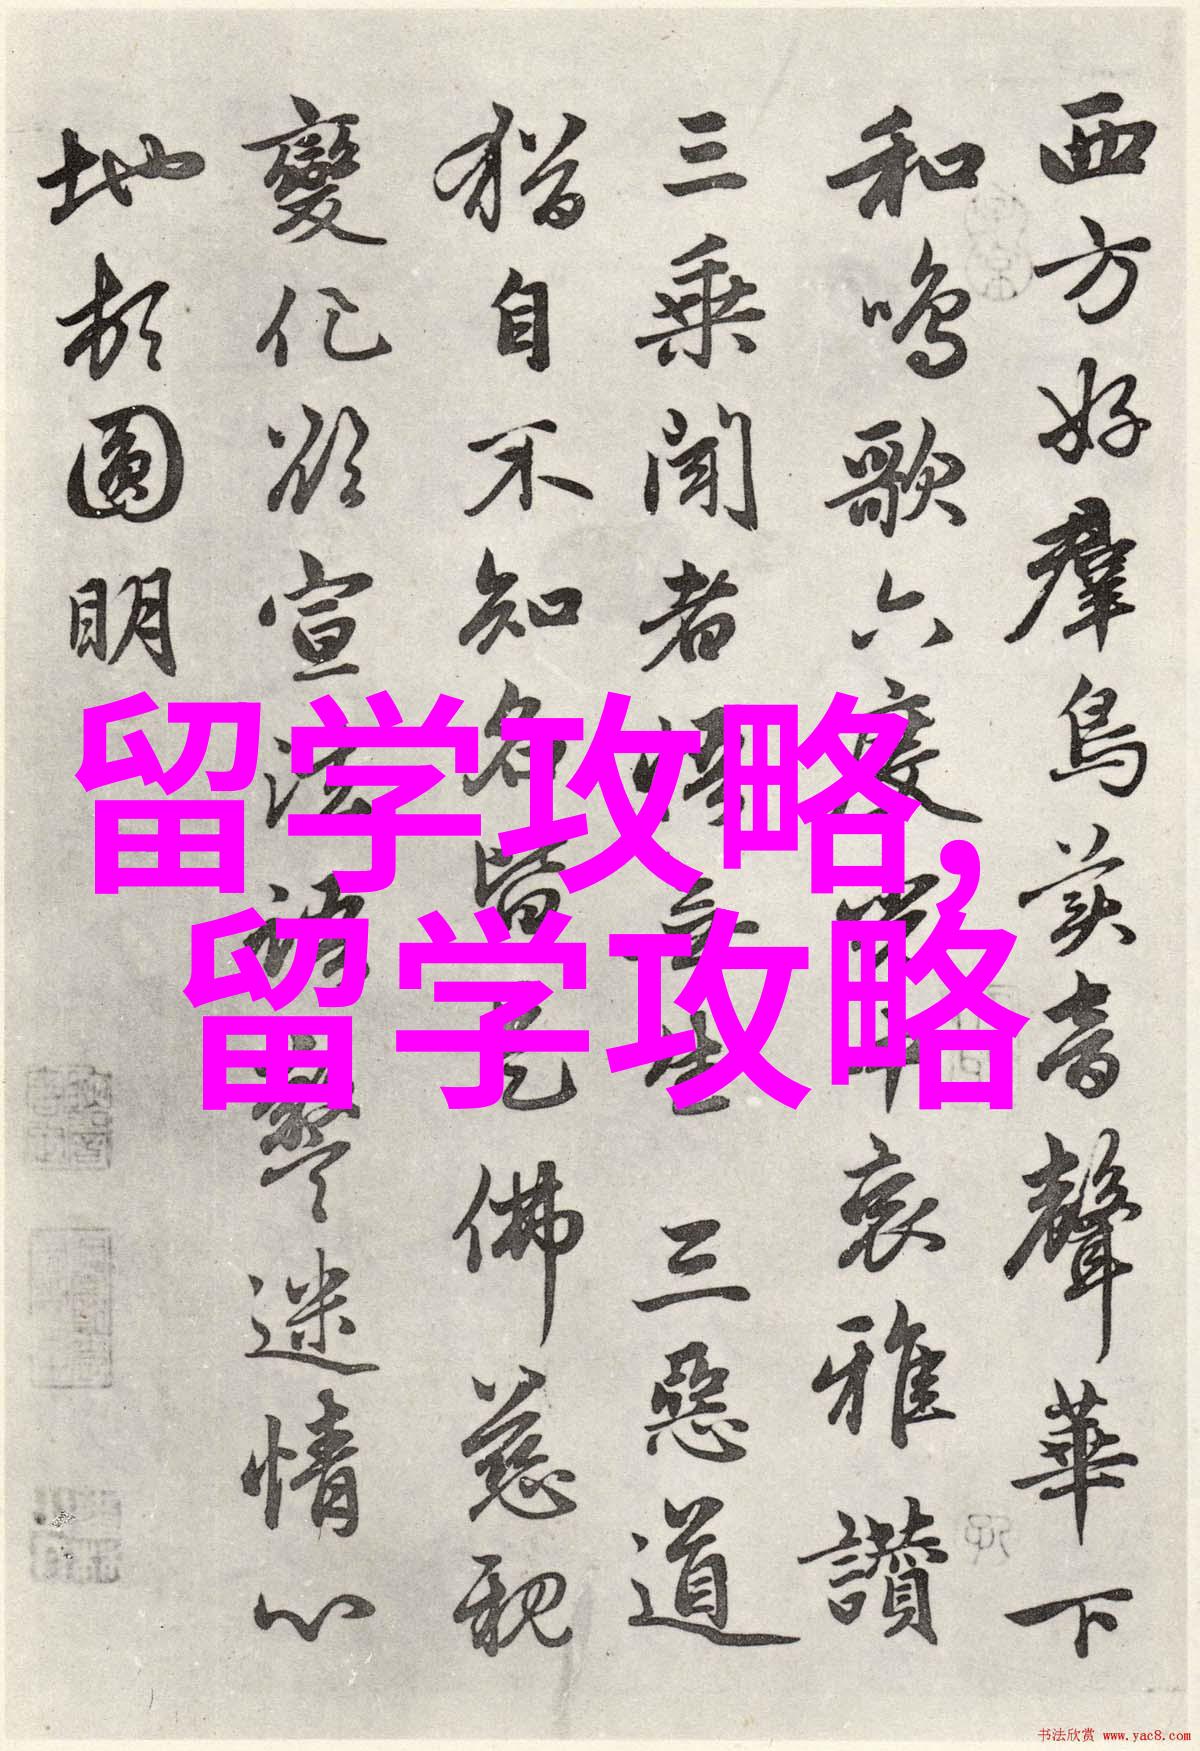 西方好群鳥美音聲華下
和鳴歌六度哀雅讚
三乘聞者悟無生三惡道
猶自不知名皆是佛慈親
變化欲宣法警迷情心
地頓圓明
留学攻略,
留学攻略
书法欣赏 www.yac8.com